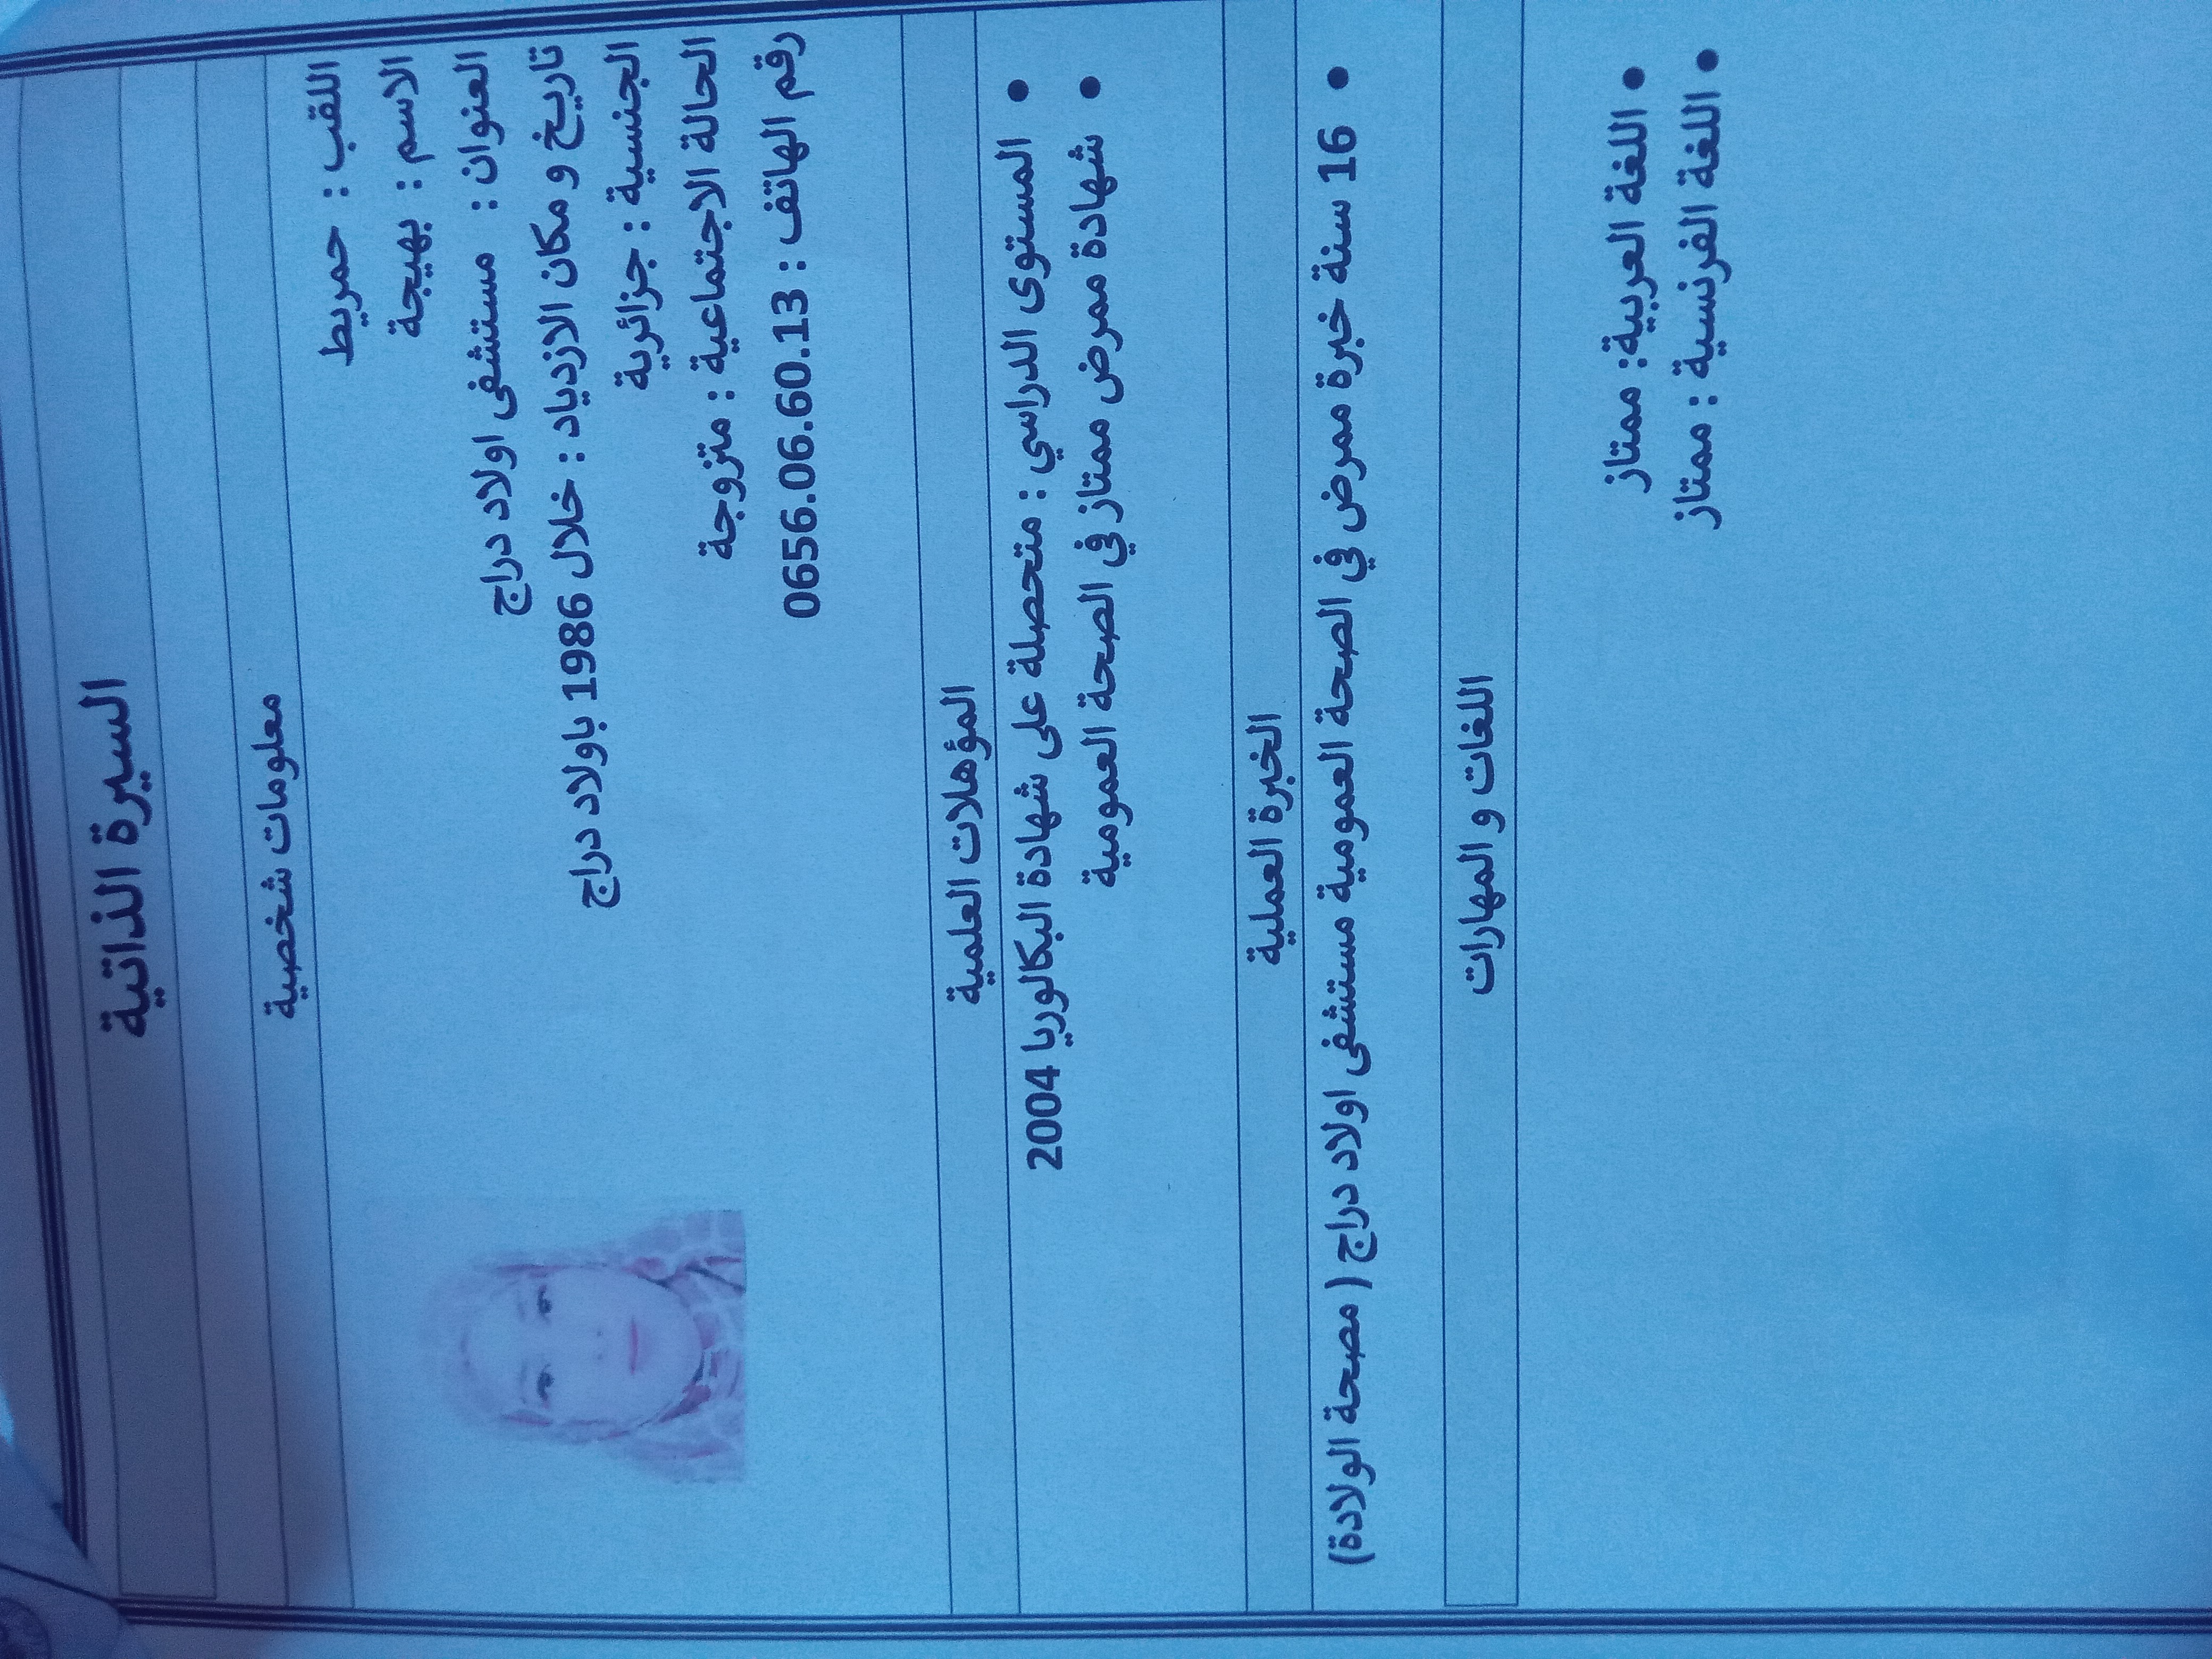 السيرة الذاتية
معلومات شخصية
اللقب : حمريط
الاسم : بهيجة
العنوان : مستشفى اولاد دراج
تاريخ و مكان الازدياد : خلال 1986 باولاد دراج
الجنسية : جزائرية
الحالة الاجتماعية : متزوجة
رقم الهاتف : 0656.06.60.13
المؤهلات العلمية
• المستوى الدراسي : متحصلة على شهادة البكالوريا 2004
• شهادة ممرض ممتاز في الصحة العمومية
الخبرة العملية
• 16 سنة خبرة ممرض في الصحة العمومية مستشفى اولاد دراج ( مصحة الولادة)
اللغات و المهارات
• اللغة العربية: ممتاز
• اللغة الفرنسية : ممتاز